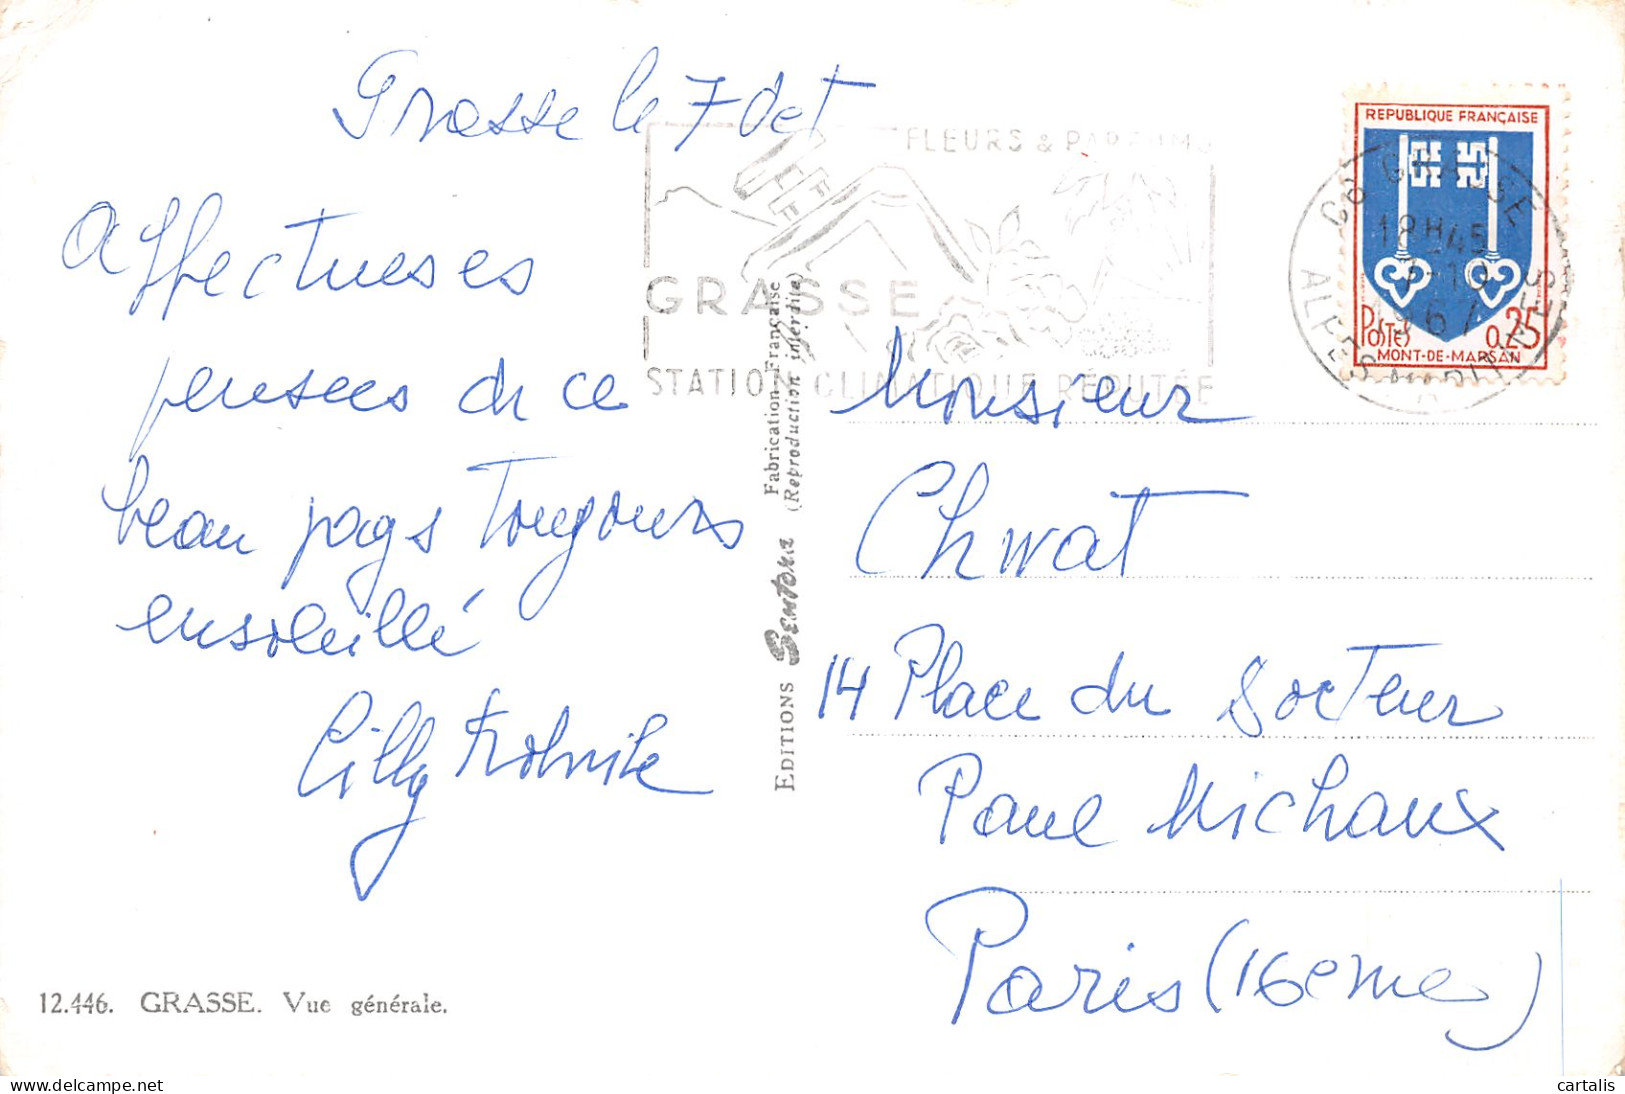 Grasse le 7 Oct
Affectueses
pensees de ce
beau pays Toujours
ensoleillé
Monsieur
Chwat
14 Place du Docteur
Paul Michaux
Paris (16eme)
12.446. GRASSE. Vue générale.
EDITIONS
Fabrication Française
(Reproduction interdite)
FLEURS & PARFUMS
GRASSE
STATION CLIMATIQUE RÉPUTÉE
REPUBLIQUE FRANÇAISE
POSTES 0,25
MONT-DE-MARSAN
GRASSE
18H45
7-10
1967
ALPES MARITIMES
cartalis